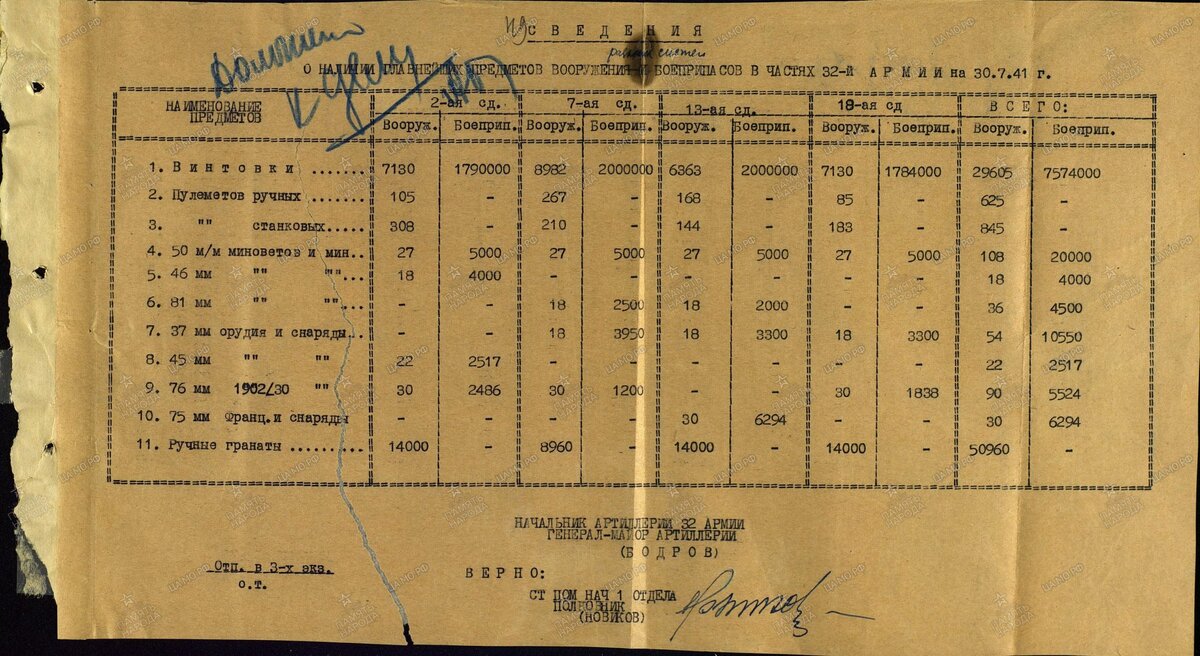 СВЕДЕНИЯ
О НАЛИЧИИ ГЛАВНЕЙШИХ ПРЕДМЕТОВ ВООРУЖЕНИЯ И БОЕПРИПАСОВ В ЧАСТЯХ 32-й АРМИИ на 30.7.41 г.
НАИМЕНОВАНИЕ ПРЕДМЕТОВ 2-ая сд. 7-ая сд. 13-ая сд. 18-ая сд ВСЕГО:
Вооруж. Боеприп. Вооруж. Боеприп. Вооруж. Боеприп. Вооруж. Боеприп. Вооруж. Боеприп.
1. Винтовки ....... 7130 1790000 8982 2000000 6363 2000000 7130 1784000 29605 7574000
2. Пулеметов ручных ....... 105 - 267 - 168 - 85 - 625 -
3. "" станковых..... 308 - 210 - 144 - 183 - 845 -
4. 50 м/м миноветов и мин.. 27 5000 27 5000 27 5000 27 5000 108 20000
5. 46 мм "" ""... 18 4000 - - - - - - 18 4000
6. 81 мм "" ""... - - 18 2500 18 2000 - - 36 4500
7. 37 мм орудия и снаряды.. - - 18 3950 18 3300 18 3300 54 10550
8. 45 мм "" "" 22 2517 - - - - - - 22 2517
9. 76 мм 1902/30 "" 30 2486 30 1200 - - 30 1838 90 5524
10. 75 мм Франц.и снаряды - - - - 30 6294 - - 30 6294
11. Ручные гранаты .......... 14000 - 8960 - 14000 - 14000 - 50960 -
НАЧАЛЬНИК АРТИЛЛЕРИИ 32 АРМИИ
ГЕНЕРАЛ-МАЙОР АРТИЛЛЕРИИ
(БОДРОВ)
Отп. в 3-х экз.
о.т.
ВЕРНО:
СТ ПОМ НАЧ 1 ОТДЕЛА
ПОЛКОВНИК
(НОВИКОВ)